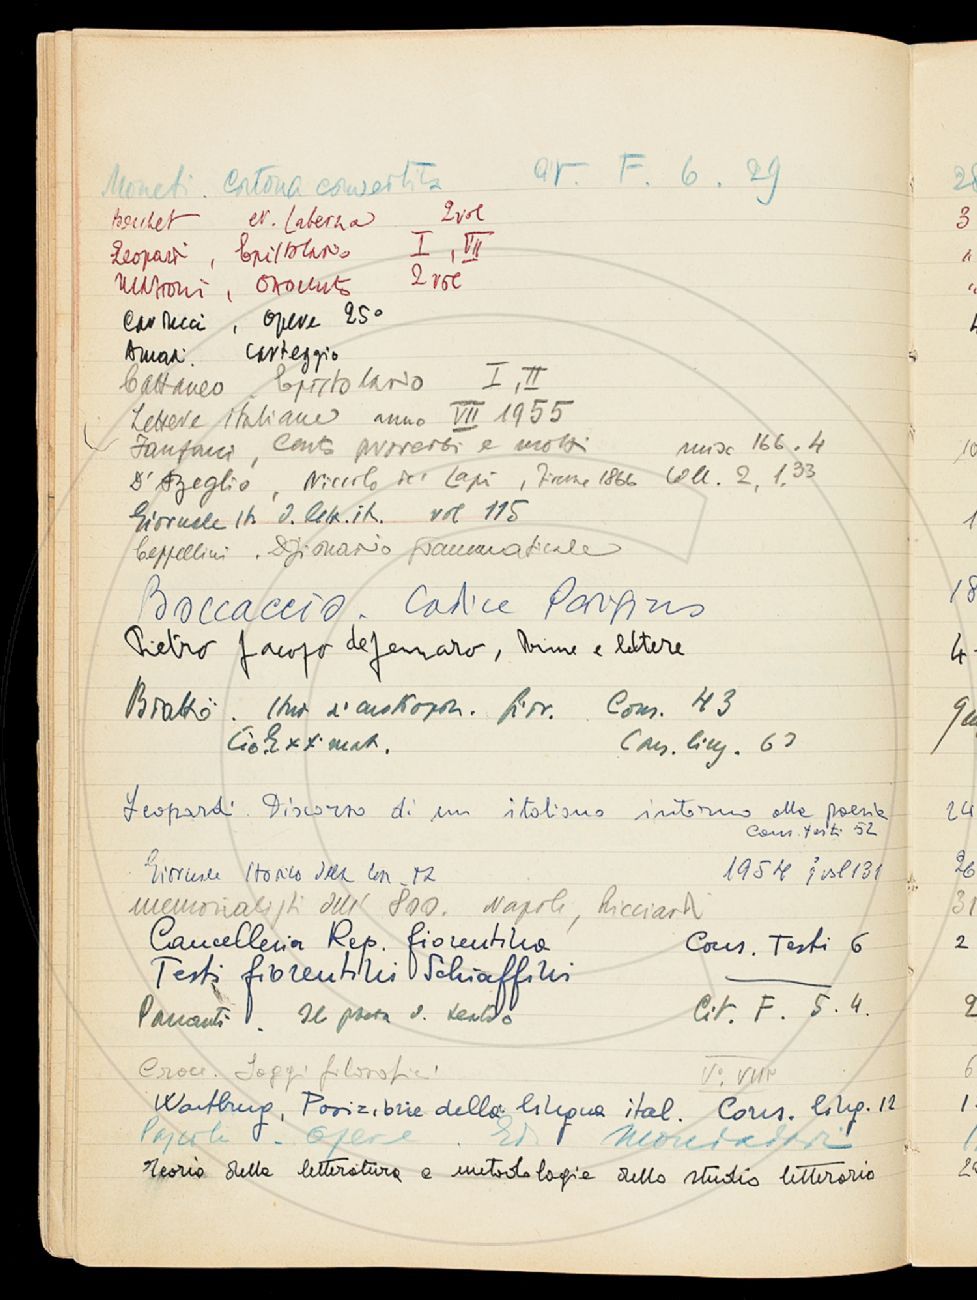 Moneti. Cortona convertita Cit. F. 6. 29
Berchet ed. Laterza 2 vol
Leopardi, Epistolario I, VII
Manzoni, 2 vol
Carducci, Opere 25°
Amari. Carteggio
Cattaneo Epistolario I, II
Lettere italiane anno VII 1955
Fanfani, Cento proverbi e motti misc 166.4
D'Azeglio, Niccolò de' Lapi, Firenze 1866 Coll. 2, 1, 33
Giornale st. d. lett. it. vol 115
Ceppellini. Dizionario grammaticale
Boccaccio. Codice Parigino
Pietro Jacopo de Jennaro, Rime e lettere
fior. Cons. 43
Cons. ling. 63
Leopardi. Discorso di un italiano intorno alla poesia
Cons. testi 52
Giornale storico della lett. it. 1954 vol 131
memorialisti dell' 800. Napoli, Ricciardi
Cancelleria Rep. fiorentina Cons. Testi 6
Testi fiorentini Schiaffini
Pananti. Il poeta d. teatro Cit. F. 5. 4.
Croce. Saggi filosofici V° VIII°
Wartburg, Posizione della lingua ital. Cons. ling. 12
Pascoli. Opere. Ed. Mondadori
Teoria della letteratura e metodologie dello studio letterario
28
3
"
"
4
10
1
18
4
24
26
31
2
2
6
1